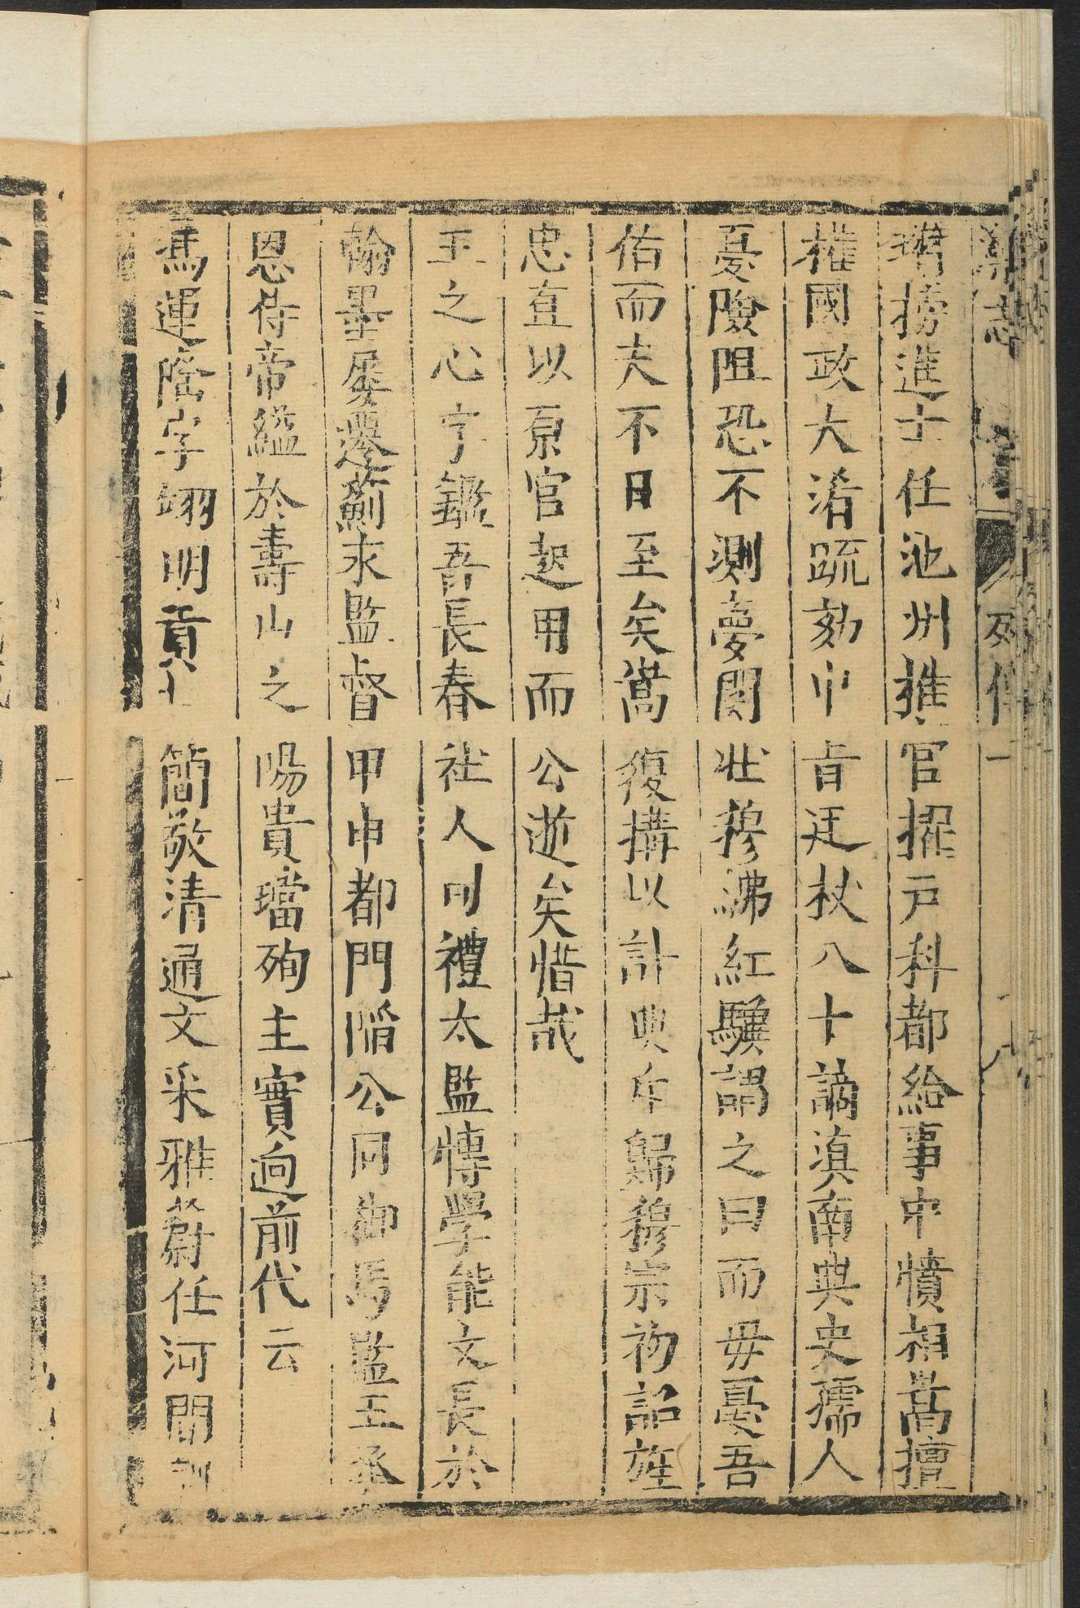 縣志 列傳 一
榜進士任池州推官擢戶科都給事中憤相嵩擅
權國政大淆疏劾中旨廷杖八十謫滇南典史孺人
憂險阻恐不測夢関壯穆沸紅驥謂之曰而毋憂吾
佑而夫不日至矣嵩復搆以計歸穆宗初詔旌
忠直以原官起用而公逝矣惜哉
王之心字鑑吾長春社人司禮太監博學能文長於
翰墨屡遷薊永監督甲申都門陷公同御馬監王承
恩侍帝縊於壽山之陽貴璫殉主實逈前代云
馮運隆字翊明貢士簡敬清通文采雅蔚任河間訓